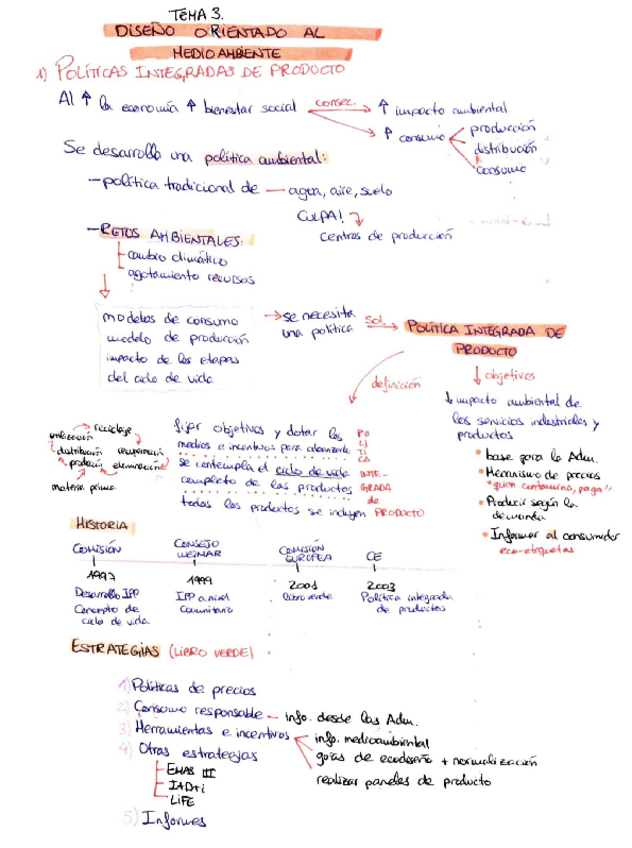 TEMA 3.
DISEÑO ORIENTADO AL
MEDIOAMBIENTE
1) POLÍTICAS INTEGRADAS DE PRODUCTO
Al ↑ la economía ↑ bienestar social consec. → ↑ impacto ambiental
↑ consumo
producción
distribución
consumo
Se desarrolla una política ambiental:
- política tradicional de — agua, aire, suelo
CULPA!
centros de producción
- RETOS AMBIENTALES:
cambio climático
agotamiento recursos
modelos de consumo
modelo de producción
impacto de las etapas
del ciclo de vida
→ se necesita
una política
sol. → POLÍTICA INTEGRADA DE
PRODUCTO
definición
↓ objetivos
↓ impacto ambiental de
los servicios industriales y
productos
• base para la Adm.
• Mecanismo de precios
"quien contamina, paga"
• Producir según la
demanda
• Informar al consumidor
eco-etiquetas
fijar objetivos y dotar los
medios e incentivos para alcanzarlos
se contempla el ciclo de vida
completo de los productos
todos los productos se incluyen
POLÍTICA
INTE-
GRADA
de
PRODUCTO
reciclaje
utilización
distribución recuperación
producción eliminación
materia prima
HISTORIA
COMISIÓN
1997
Desarrollo IPP
Concepto de
ciclo de vida
CONSEJO
WEIMAR
1999
IPP a nivel
comunitario
COMISIÓN
EUROPEA
2001
libro verde
CE
2003
Política integrada
de productos
ESTRATEGIAS (LIBRO VERDE)
1) Políticas de precios
2) Consumo responsable — info. desde las Adm.
3) Herramientas e incentivos
info. medioambiental
guías de ecodiseño + normalización
realizar paneles de producto
4) Otras estrategias
EMAS III
I+D+i
LIFE
5) Informes